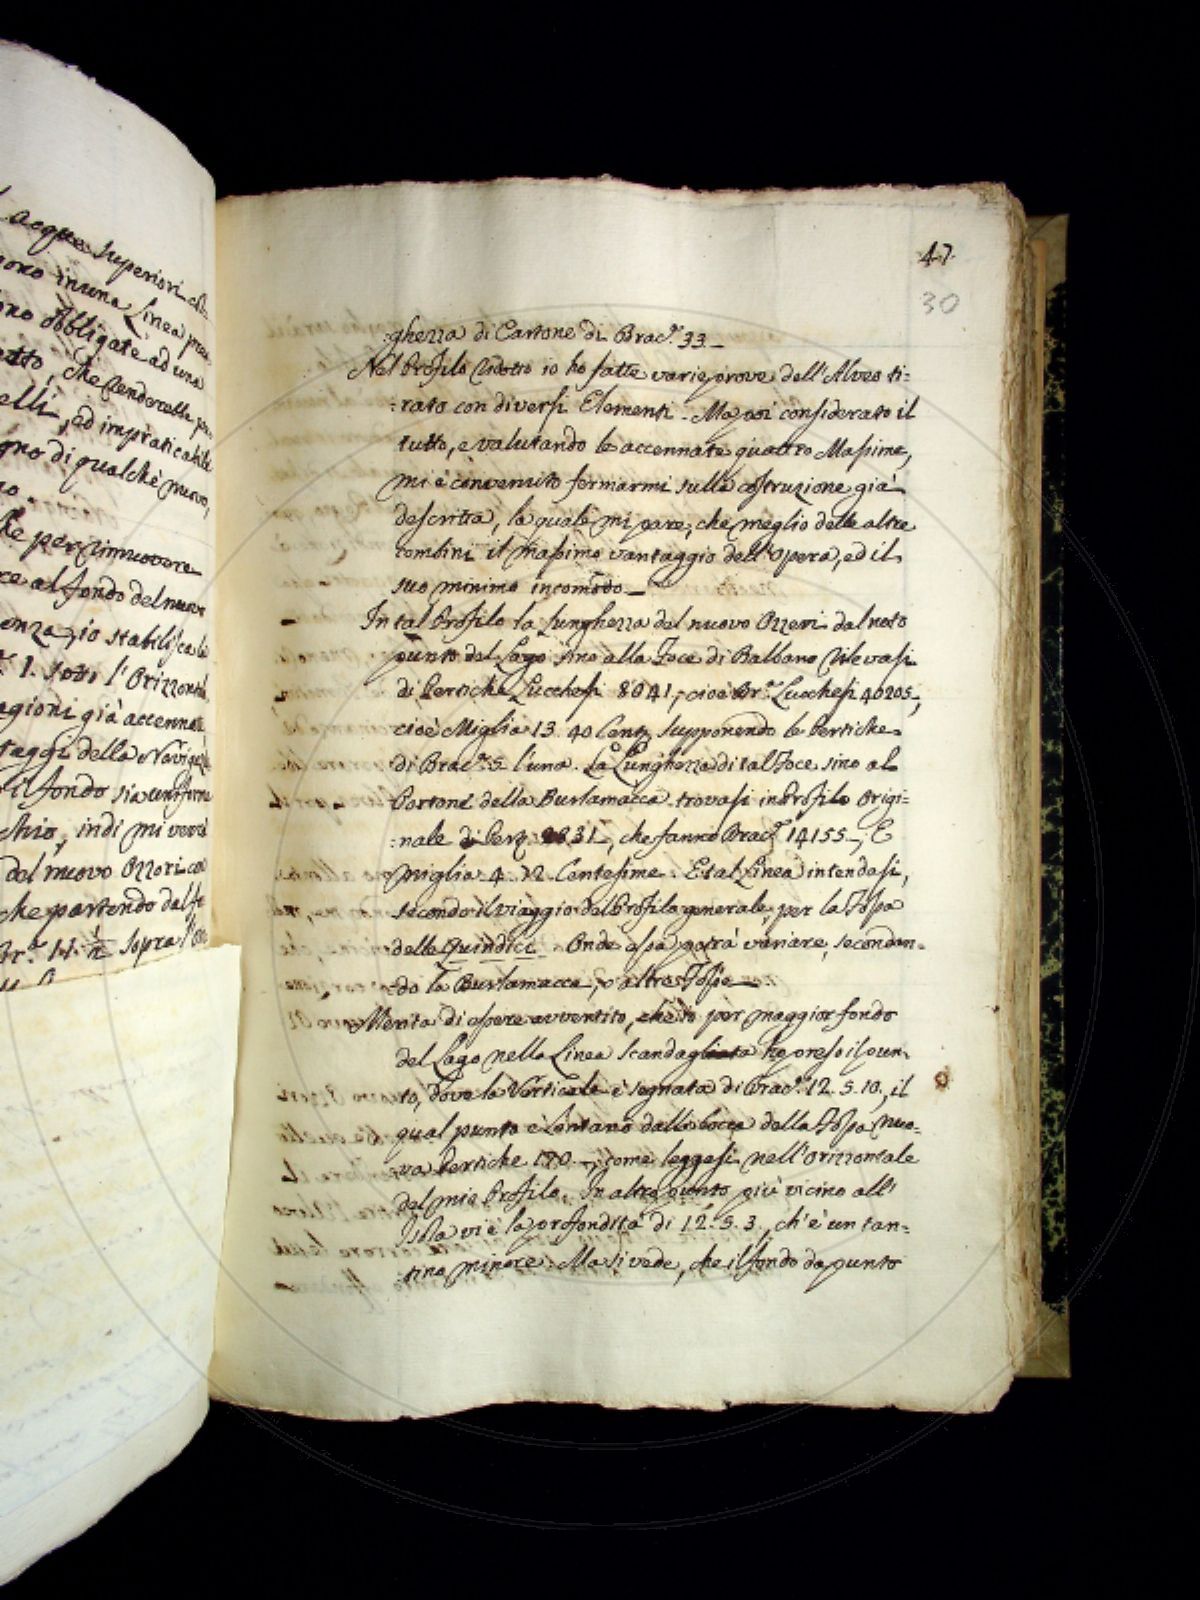 acque superiori
in una Linea
obbligate ad una
che renderelle
ad impraticabile
di qualchè nuovo,
per rimuovere
al fondo del nuovo
io stabilisca
1. sotto l'Orizzontal
già accennat
della Navigaz
fondo sia uniforme
indi mi verrà
del nuovo Ozzori
che partendo dal
14. 1/2 sopra l'
47.
30
:ghezza di Cartone di Brac.ª 33 –
Nel Profilo ridotto io ho fatte varie prove dell'Alveo ti:
:rato con diversi Elementi. Ma poi considerato il
tutto, e valutando le accennate quattro Massime,
mi è convenuto fermarmi sulla costruzione già
descritta, la quale mi pare, che meglio delle altre
combini il massimo vantaggio dell'Opera, ed il
suo minimo incomodo –
In tal Profilo la Lunghezza del nuovo Ozzeri dal noto
punto del Lago sino alla Foce di Balbano rilevasi
di Pertiche Lucchesi 8041, cioè Br.ª Lucchesi 40205,
cioè Miglia 13. 40 Cent. supponendo le Pertiche
di Brac.ª 5 l'una. La Lunghezza di tal Foce sino al
Portone della Burlamacca trovasi in Profilo origi:
:nale di Pert. 2831, che fanno Brac.ª 14155 –, E
miglia 4. 72 Centesime. E tal Linea intendasi,
secondo il viaggio del Profilo generale, per la Fossa
delle Quindici. Onde essa potrà variare, secondan:
:do la Burlamacca, o altre Fosse –
Merita di essere avvertito, che io per maggior fondo
del Lago nella Linea scandagliata ho preso il pun:
:to, dove la Verticale è segnata di Brac.ª 12. 5. 10., il
qual punto è lontano dalla bocca della Fossa Nuo:
:va Pertiche 170 –, come leggesi nell'orizzontale
del mio Profilo. In altro punto più vicino all'
Isola vi è la profondità di 12. 5. 3., ch'è un tan:
:tino minore. Ma si vede, che il fondo da punto